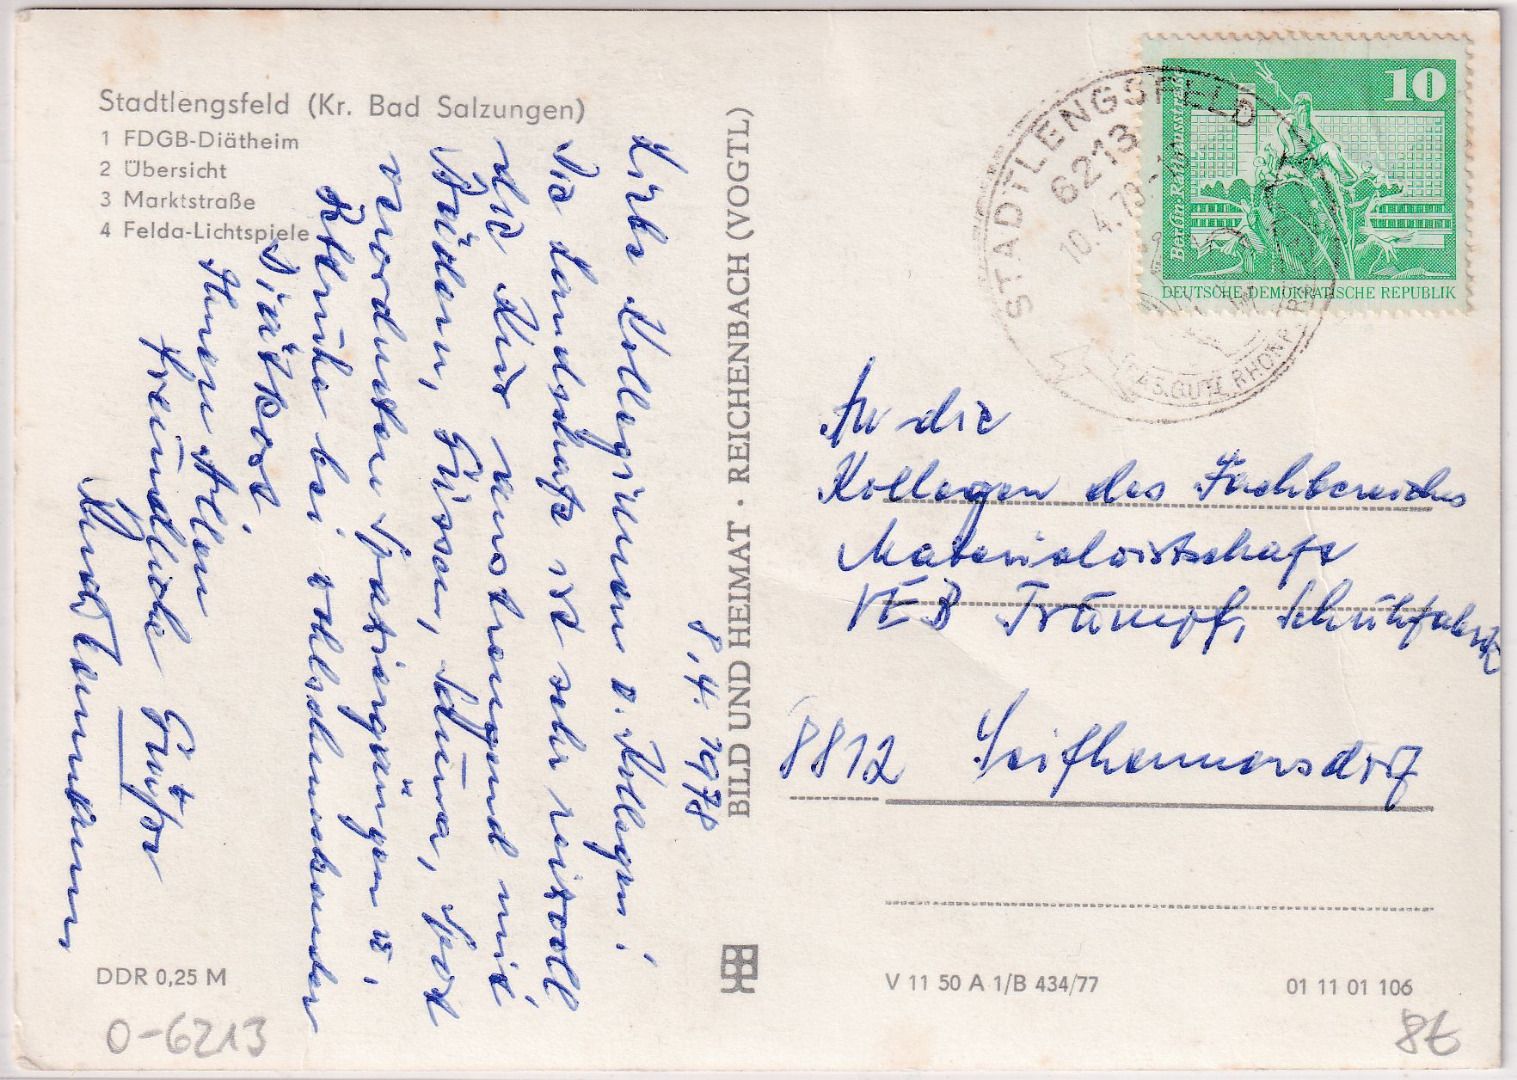 Stadtlengsfeld (Kr. Bad Salzungen)
1 FDGB-Diätheim
2 Übersicht
3 Marktstraße
4 Felda-Lichtspiele
8.4.1978
Liebe Kolleginnen u. Kollegen!
Die Landschaft ist sehr reizvoll
die Kur anstrengend mit
Bädern, Güssen, Sauna, Sport
verordneten Spaziergängen u.
Bettruhe bei wohlschmeckender
Diätkost
Ihnen Allen
freundliche Grüße
BILD UND HEIMAT · REICHENBACH (VOGTL)
STADTLENGSFELD
6213
10.4.78
10
DEUTSCHE DEMOKRATISCHE REPUBLIK
An die
Kollegen des Fachbereiches
Materialwirtschaft
VEB Trumpf, Schuhfabrik
8812 Seifhennersdorf
DDR 0,25 M
V 11 50 A 1/B 434/77
01 11 01 106
O-6213